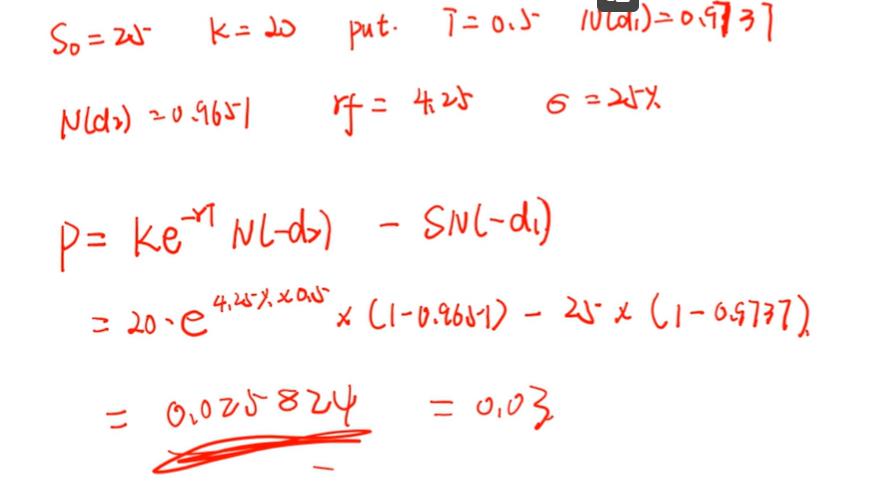 S₀ = 25 K = 20 put. T = 0.5 N(d₁) = 0.9737
N(d₂) = 0.9651 rf = 4.25 σ = 25%
P = Ke^-rT N(-d₂) - SN(-d₁)
= 20·e^4.25%×0.5 × (1-0.9651) - 25 × (1-0.9737)
= 0.025824 = 0.03